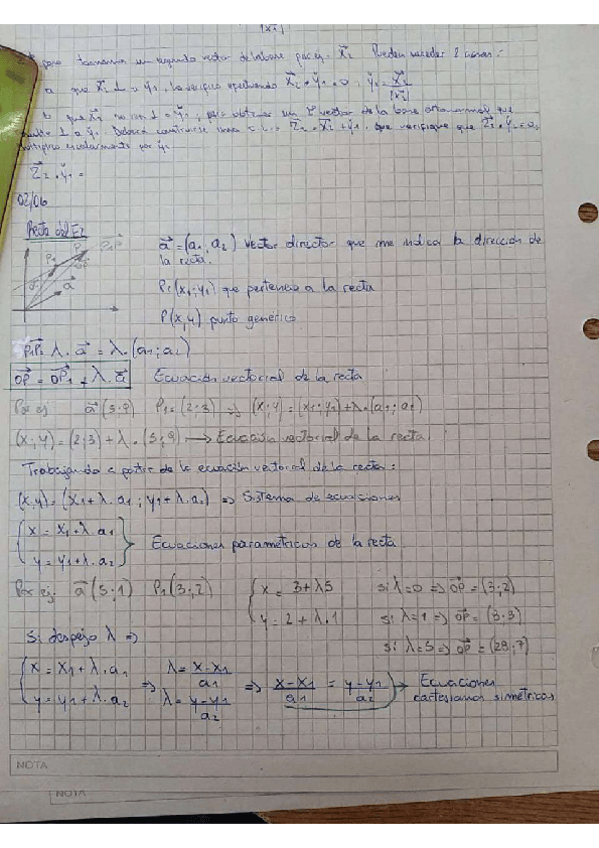 |x⃗2|
para tomamos un segundo vector de la base por ej. x⃗2 Pueden suceder 2 cosas:
a que x⃗2 ⊥ a y̌1, lo verifico operando x⃗2 · y̌1 = 0 ; y̌2 = x⃗2 / |x⃗2|
b que x⃗2 no sea ⊥ y̌1, para obtener un 2º vector de la base ortonormal que
⊥ a y̌1. Deberá construirse z⃗2 = x⃗2 + y̌1, que verifique que z⃗2 · y̌1 = 0,
multiplico escalarmente por y̌1
z⃗2 · y̌1 =
02/06
Recta del E2
P1 P P1P OP a⃗
a⃗ = (a1, a2) Vector director que me indica la dirección de
la recta.
P1 (x1; y1) que pertenece a la recta
P(x,y) punto genérico
P1P = λ. a⃗ = λ.(a1; a2)
OP = OP1 + λ.a⃗ Ecuación vectorial de la recta
Por ej a⃗ (5;9) P1 = (2;3) => (x;y) = (x1;y1)+λ.(a1;a2)
(x;y) = (2;3) + λ.(5;9) → Ecuación vectorial de la recta.
Trabajando a partir de la ecuación vectorial de la recta:
(x,y) = (x1+λ.a1 ; y1+λ.a2) => Sistema de ecuaciones
{ x = x1 + λ.a1
{ y = y1 + λ.a2 } Ecuaciones paramétricas de la recta
Por ej: a⃗ (5;1) P1 (3;2) { x = 3+λ5 si λ=0 => OP = (3;2)
{ y = 2+λ.1 si λ=1 => OP = (8;3)
si λ=5 => OP = (28;7)
Si despejo λ =>
{ x = x1 + λ.a1 => λ = x-x1 / a1 => x-x1 / a1 = y-y1 / a2 → Ecuaciones
{ y = y1 + λ.a2 λ = y-y1 / a2 cartesianas simétricas
NOTA
NOTA